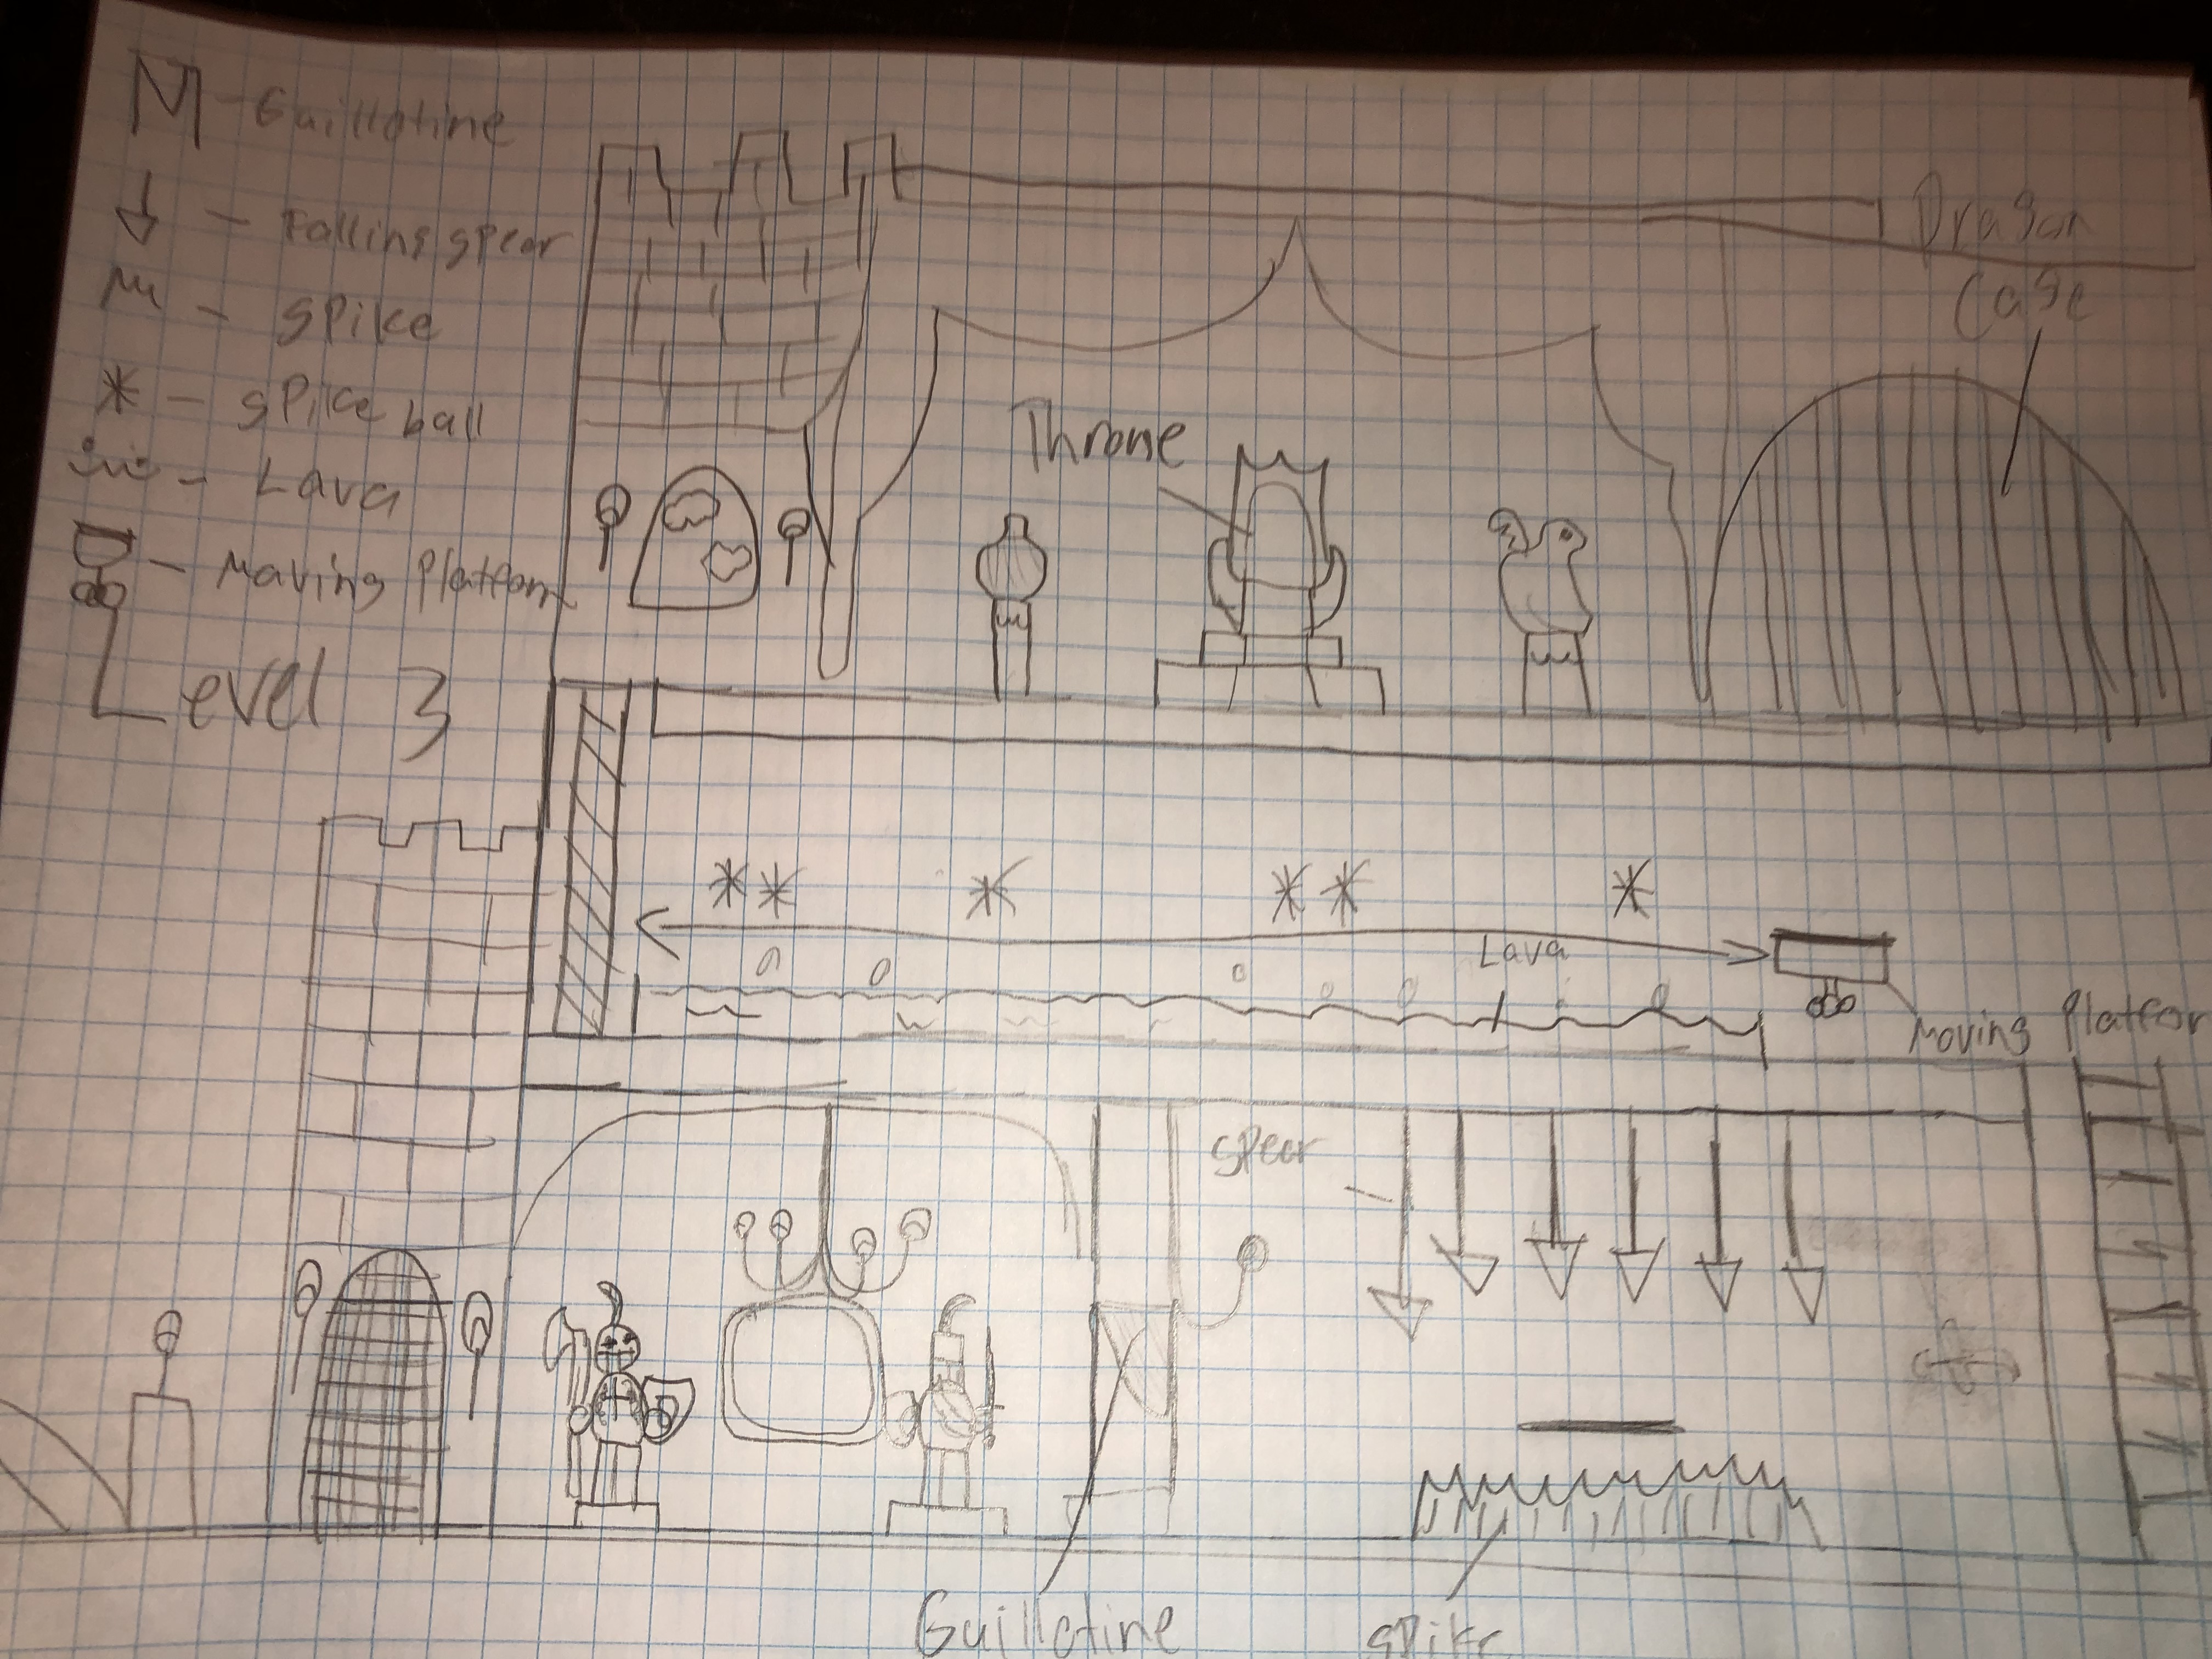 - Guillotine
- Falling spear
- Spike
* - Spike ball
- Lava
- Moving Platform
Level 3
Dragon
Cage
Throne
Lava
Moving Platfor
Spear
Guillotine
Spike